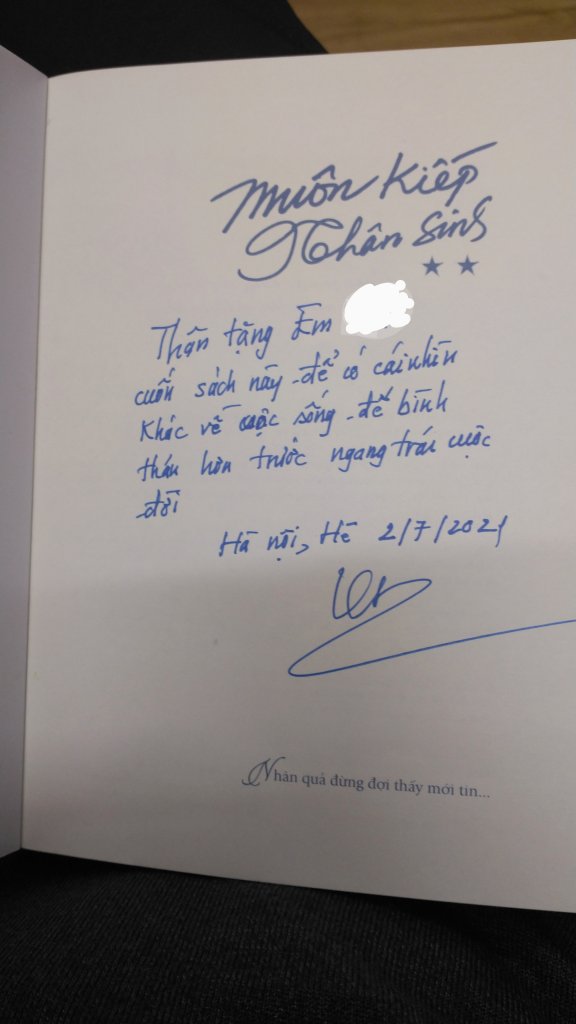 Muôn Kiếp
Nhân Sinh
Thân tặng Em
cuốn sách này để có cái nhìn
khác về cuộc sống để bình
thản hơn trước ngang trái cuộc
đời
Hà nội, Hè 2/7/2021
Nhân quả đừng đợi thấy mới tin...